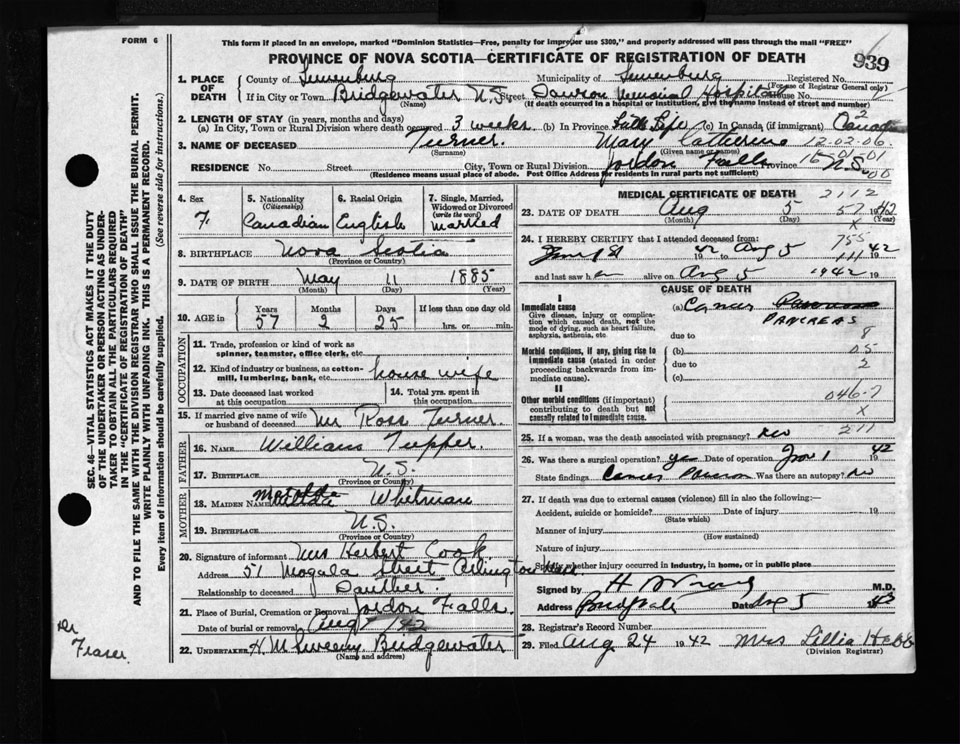 FORM 6
This form if placed in an envelope, marked "Dominion Statistics—Free, penalty for improper use $300," and properly addressed will pass through the mail "FREE"
PROVINCE OF NOVA SCOTIA—CERTIFICATE OF REGISTRATION OF DEATH
939
1. PLACE OF DEATH
County of Lunenburg Municipality of Lunenburg Registered No.
(For use of Registrar General only)
If in City or Town Bridgewater N.S. Street Dawson Memorial Hospital House No.
(Name) (If death occurred in a hospital or institution, give the name instead of street and number)
2. LENGTH OF STAY (in years, months and days)
(a) In City, Town or Rural Division where death occurred 3 weeks (b) In Province Life (c) In Canada (if immigrant) Canada
2
3. NAME OF DECEASED Turner Mary Catherine 12-02-06
(Surname) (Given name or names)
RESIDENCE No. Street City, Town or Rural Division Jordon Falls Province N.S.
(Residence means usual place of abode. Post Office Address for residents in rural parts not sufficient)
4. Sex
F.
5. Nationality (Citizenship)
Canadian
6. Racial Origin
English
7. Single, Married, Widowed or Divorced (write the word)
married
8. BIRTHPLACE Nova Scotia
(Province or Country)
9. DATE OF BIRTH May 11 1885
(Month) (Day) (Year)
10. AGE
Years Months Days If less than one day old
57 2 25 hrs. or min.
OCCUPATION
11. Trade, profession or kind of work as spinner, teamster, office clerk, etc.
12. Kind of industry or business, as cotton-mill, lumbering, bank, etc. house wife
13. Date deceased last worked at this occupation
14. Total yrs. spent in this occupation
15. If married give name of wife or husband of deceased Mr Ross Turner
FATHER
16. NAME William Tupper.
17. BIRTHPLACE N.S.
(Province or Country)
MOTHER
18. MAIDEN NAME Whitman
19. BIRTHPLACE N.S.
(Province or Country)
20. Signature of informant Mrs Herbert Cook
Address 51 street Arlington Mass
Relationship to deceased Dauther.
21. Place of Burial, Cremation or Removal Jordon Falls.
Date of burial or removal Aug 7 '42
22. UNDERTAKER H. M Sweeny. Bridgewater
(Name and address)
Dr
Fraser
MEDICAL CERTIFICATE OF DEATH 2112
23. DATE OF DEATH Aug 5 57 1942
(Month) (Day) (Year)
x
24. I HEREBY CERTIFY that I attended deceased from:
755
42 to Aug 5 42
111
and last saw h er alive on Aug 5 1942 19
CAUSE OF DEATH
I
Immediate cause
Give disease, injury or complication which caused death, not the mode of dying, such as heart failure, asphyxia, asthenia, etc
(a) Cancer
PANCREAS
due to 8
Morbid conditions, if any, giving rise to immediate cause (stated in order proceeding backwards from immediate cause).
(b) 05
due to 2
(c)
II
Other morbid conditions (if important) contributing to death but not causally related to immediate cause.
046.7
x
211
25. If a woman, was the death associated with pregnancy? no
26. Was there a surgical operation? yes Date of operation 1 1942
State findings Cancer Was there an autopsy? no
27. If death was due to external causes (violence) fill in also the following:—
Accident, suicide or homicide? Date of injury 19
(State which)
Manner of injury
(How sustained)
Nature of injury
Specify whether injury occurred in industry, in home, or in public place
Signed by M.D.
Address Date Aug 5
28. Registrar's Record Number
29. Filed Aug 24 1942 Mrs Lillia Hebb
(Division Registrar)
SEC. 46—VITAL STATISTICS ACT MAKES IT THE DUTY OF THE UNDERTAKER OR PERSON ACTING AS UNDERTAKER TO OBTAIN ALL THE PARTICULARS REQUIRED IN THE "CERTIFICATE OF REGISTRATION OF DEATH" AND TO FILE THE SAME WITH THE DIVISION REGISTRAR WHO SHALL ISSUE THE BURIAL PERMIT.
WRITE PLAINLY WITH UNFADING INK. THIS IS A PERMANENT RECORD.
Every item of information should be carefully supplied. (See reverse side for instructions.)